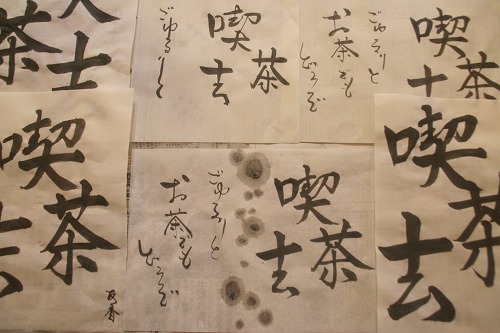 喫
茶
去
ごゆるりと
喫
茶
ごゆるりと
お茶でも
どうぞ
茶
喫
茶
去
喫
茶
去
ごゆるりと
お茶でも
どうぞ
喫
茶
去